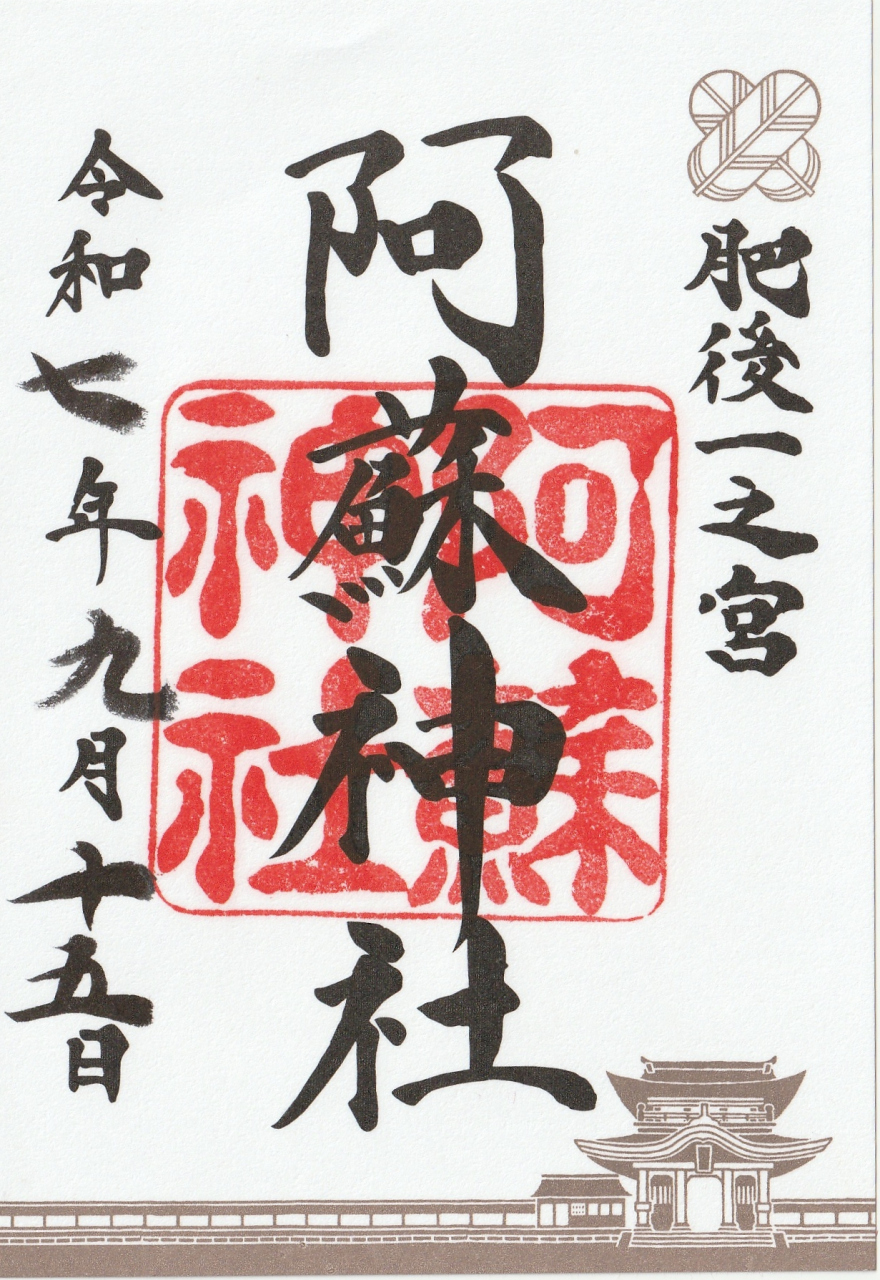 肥後一之宮
阿蘇神社
阿蘇神社
令和七年九月十五日